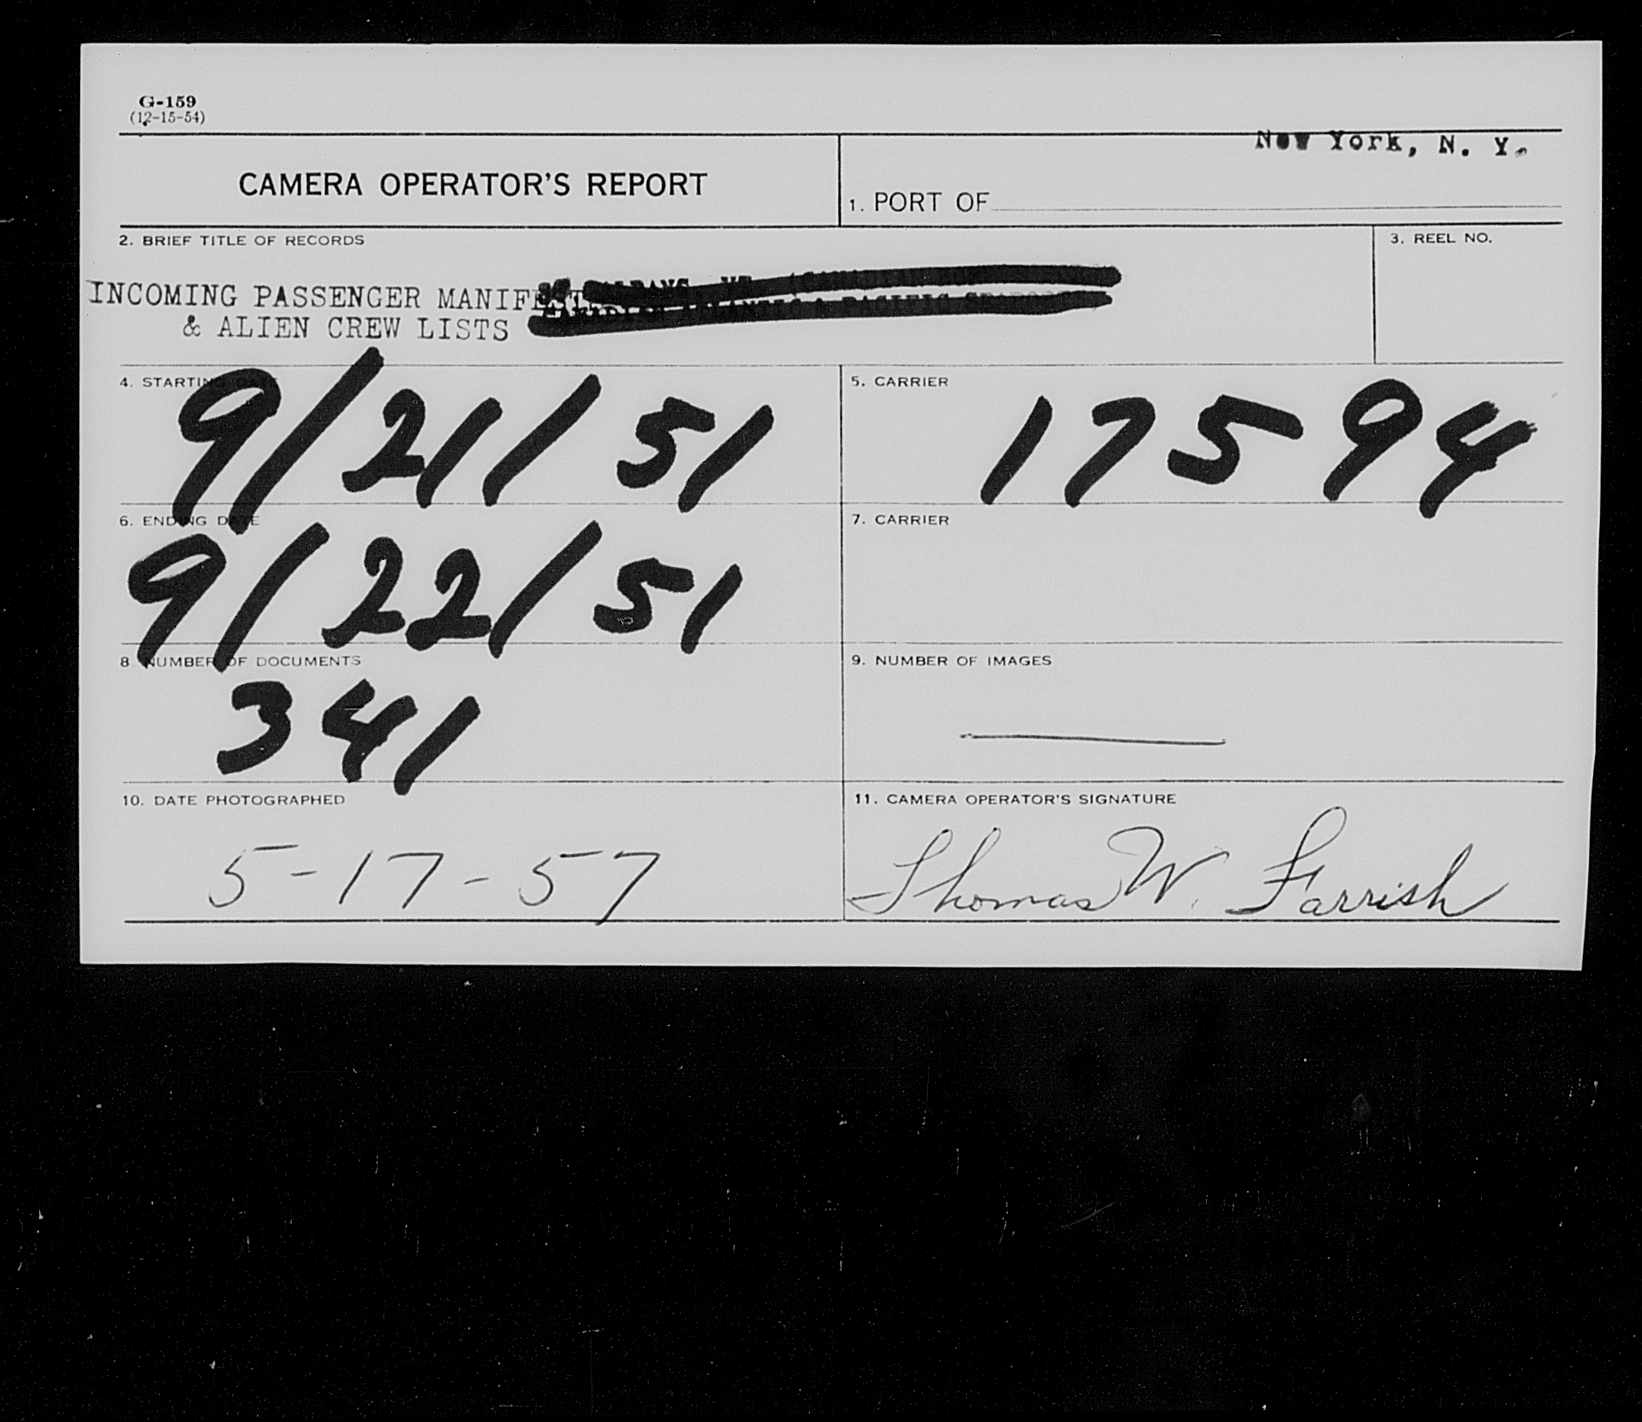 G-159
(12-15-54)
New York, N. Y.
CAMERA OPERATOR'S REPORT
1. PORT OF
2. BRIEF TITLE OF RECORDS
3. REEL NO.
INCOMING PASSENGER MANIFEST
& ALIEN CREW LISTS
4. STARTING DATE
9/21/51
5. CARRIER
17594
6. ENDING DATE
9/22/51
7. CARRIER
8 NUMBER OF DOCUMENTS
341
9. NUMBER OF IMAGES
10. DATE PHOTOGRAPHED
5-17-57
11. CAMERA OPERATOR'S SIGNATURE
Thomas W. Farrish